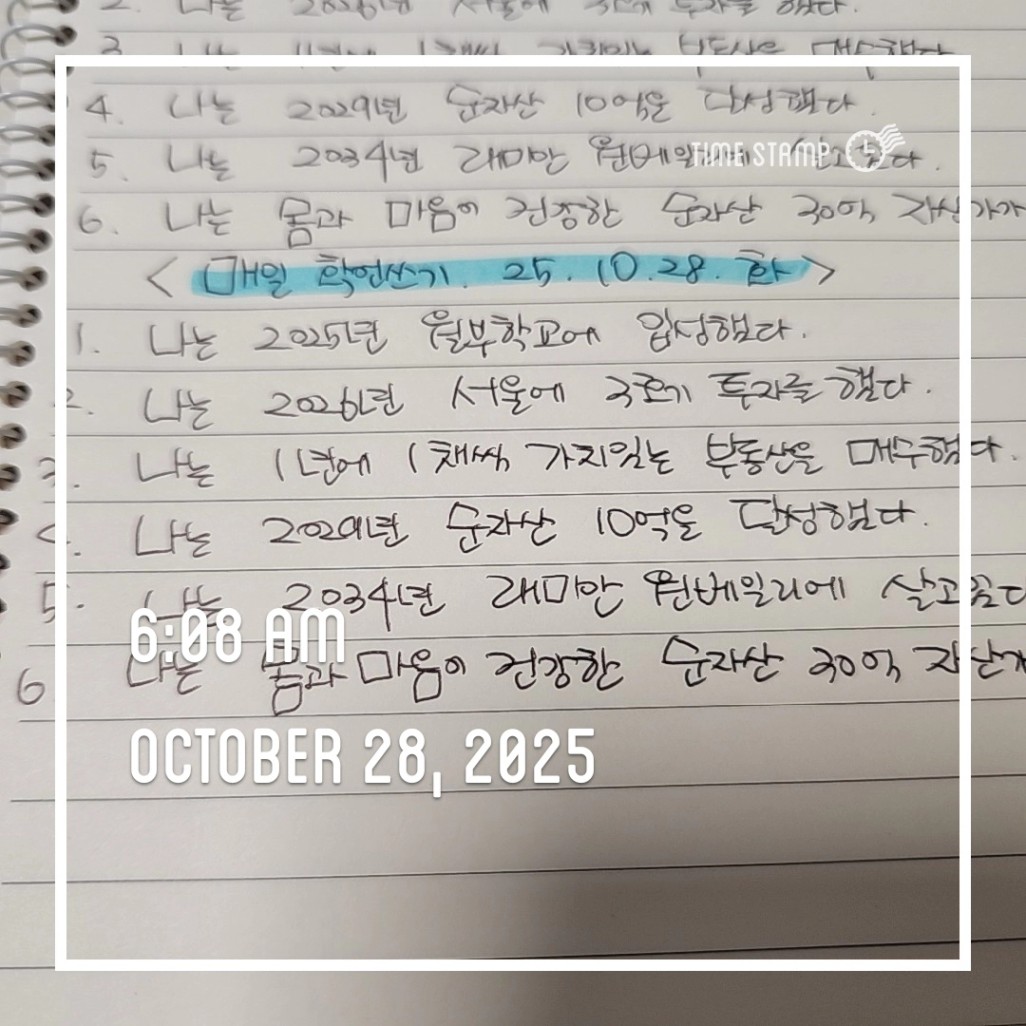 2. 나는 2026년 서울에 3호기 투자를 했다.
3. 나는 1년에 1채씩 가치있는 부동산을 매수했다
4. 나는 2029년 순자산 10억을 달성했다.
5. 나는 2034년 래미안 원베일리에 살고있다.
TIME STAMP
6. 나는 몸과 마음이 건강한 순자산 30억 자산가가
< 매일 확언쓰기. 25. 10. 28. 화 >
1. 나는 2025년 월부학교에 입성했다.
2. 나는 2026년 서울에 3호기 투자를 했다.
3. 나는 1년에 1채씩 가치있는 부동산을 매수했다.
4. 나는 2029년 순자산 10억을 달성했다.
5. 나는 2034년 래미안 원베일리에 살고있다
6:08 AM
6 나는 몸과 마음이 건강한 순자산 30억 자산가
OCTOBER 28, 2025